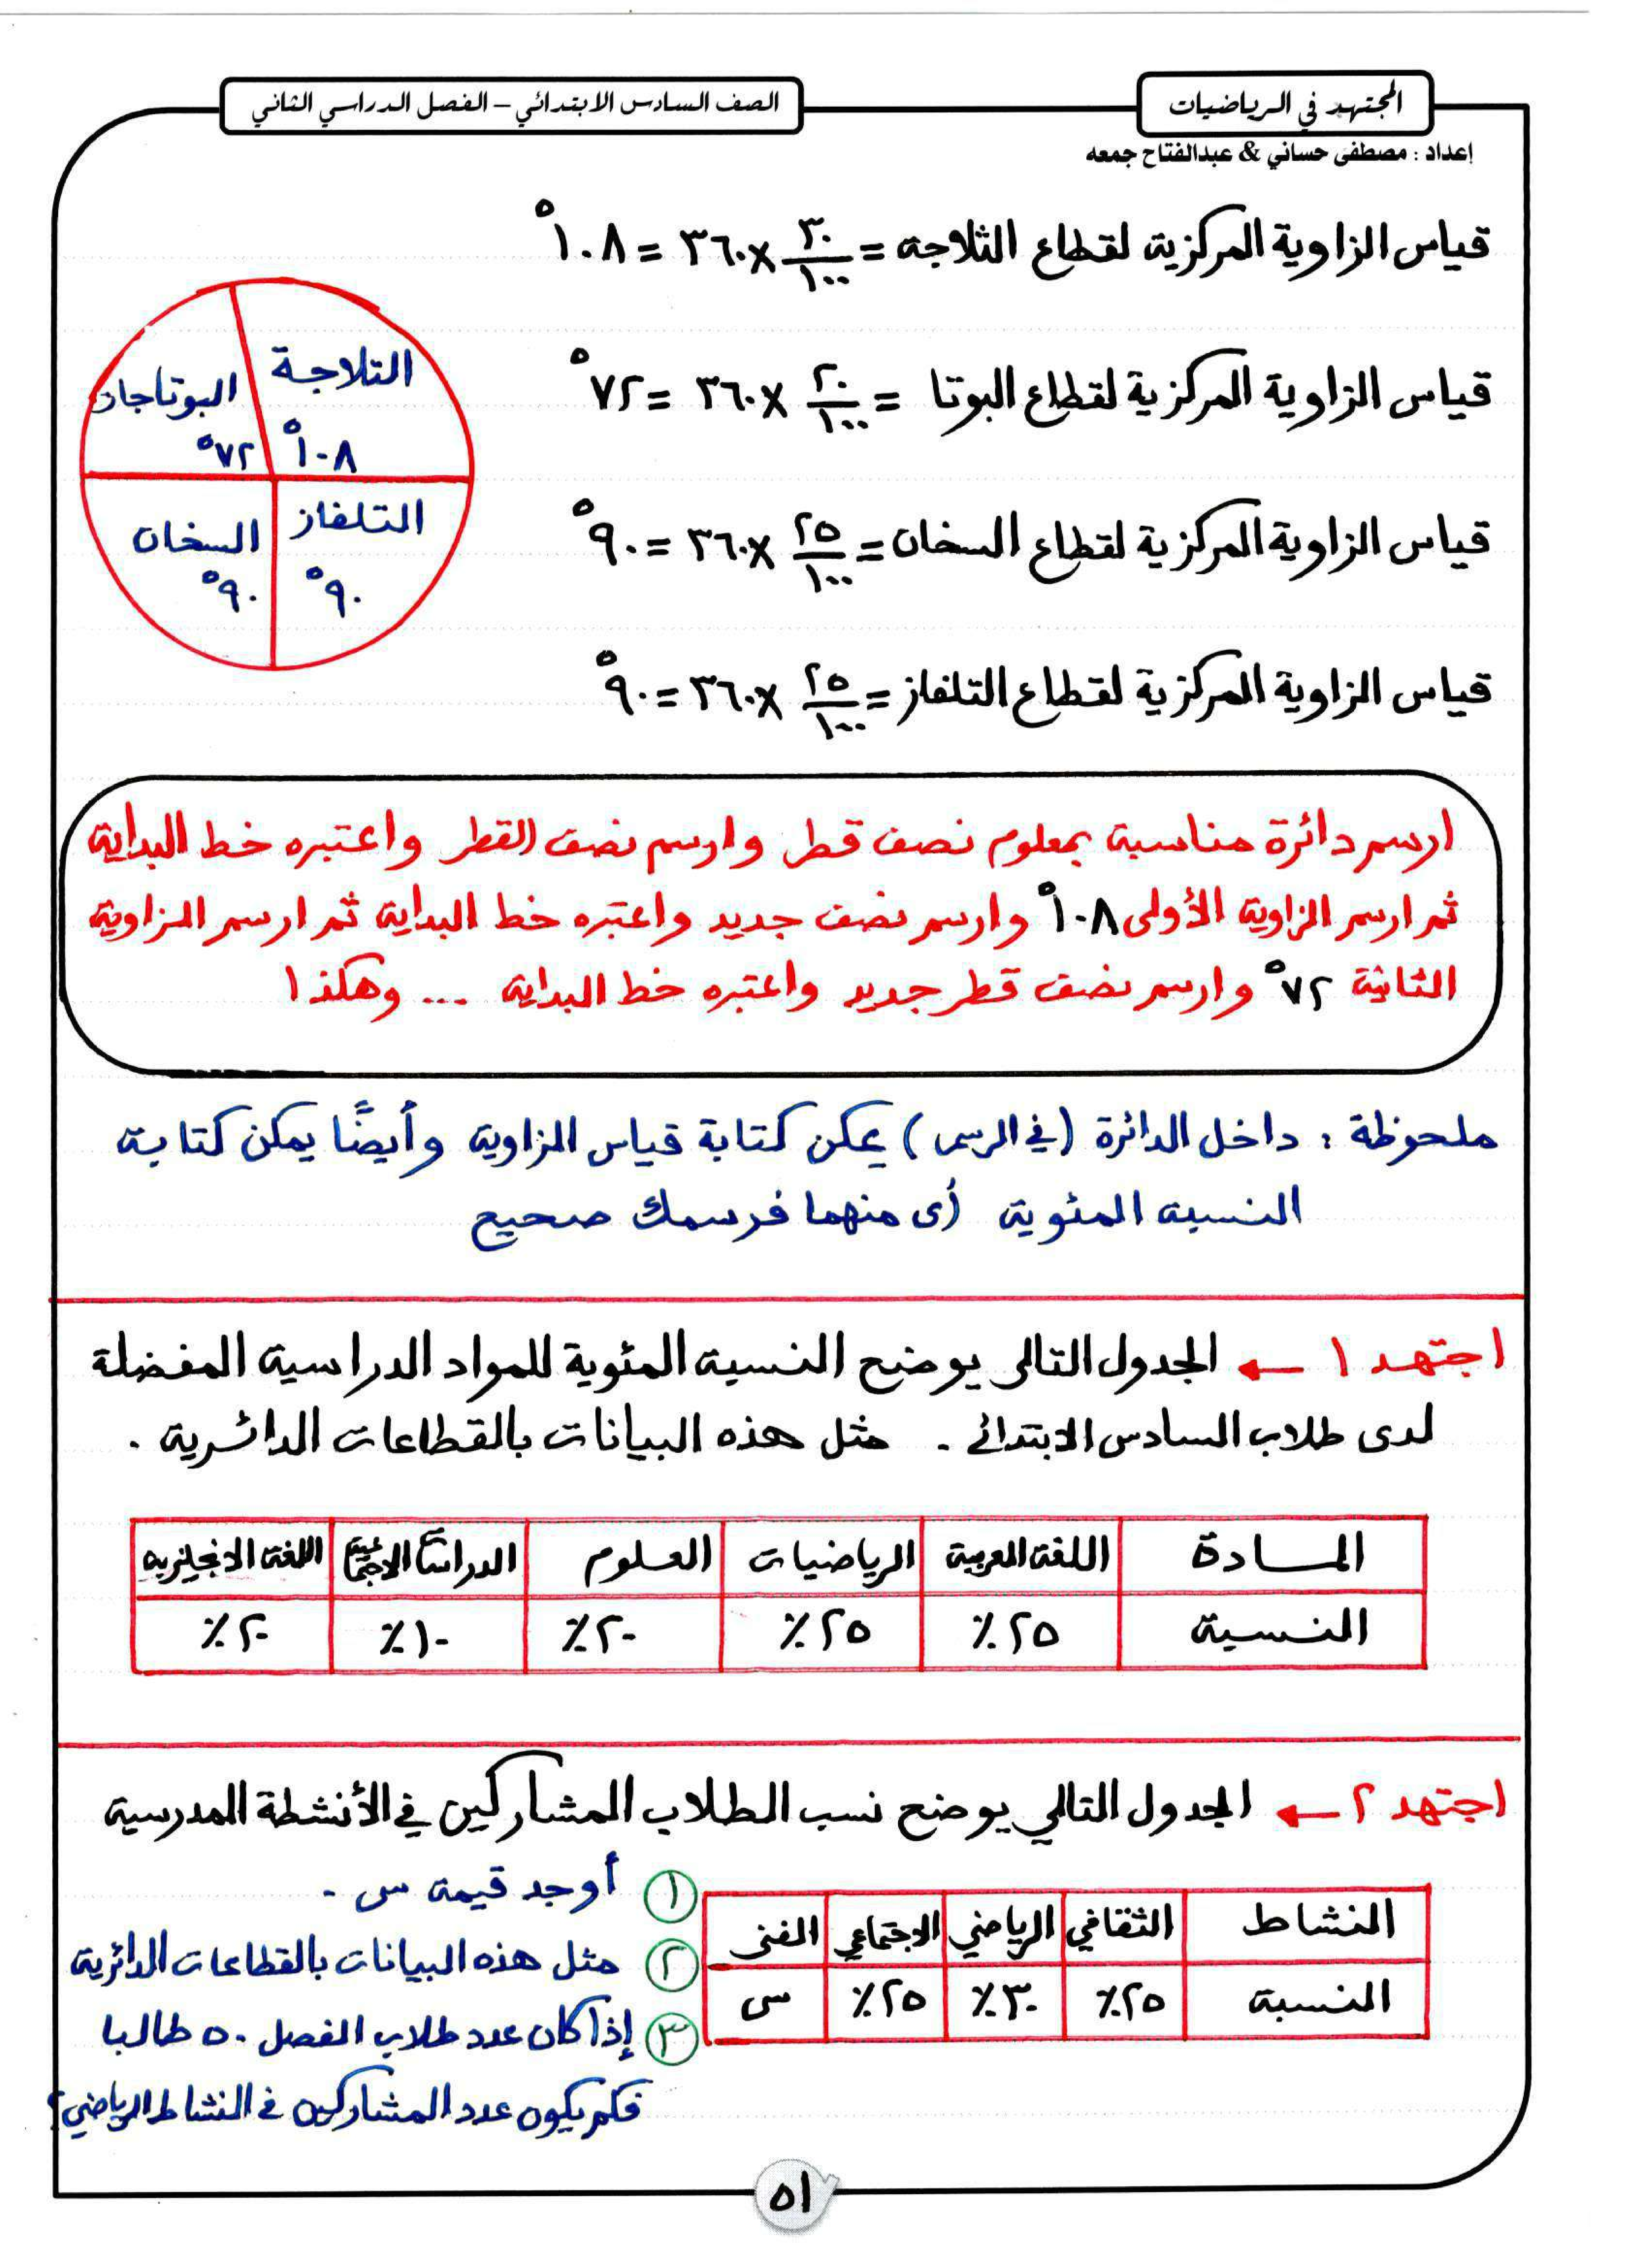 المجتهد في الرياضيات
الصف السادس الابتدائي – الفصل الدراسي الثاني
إعداد : مصطفى حساني & عبدالفتاح جمعه
قياس الزاوية المركزية لقطاع الثلاجه = ٣٠/١٠٠ × ٣٦٠ = ١٠٨°
قياس الزاوية المركزية لقطاع البوتا = ٢٠/١٠٠ × ٣٦٠ = ٧٢°
قياس الزاوية المركزية لقطاع السخان = ٢٥/١٠٠ × ٣٦٠ = ٩٠°
قياس الزاوية المركزية لقطاع التلفاز = ٢٥/١٠٠ × ٣٦٠ = ٩٠°
الثلاجة
١٠٨°
البوتاجاز
٧٢°
التلفاز
٩٠°
السخان
٩٠°
ارسم دائرة مناسبة بمعلوم نصف قطر وارسم نصف القطر واعتبره خط البداية
ثم ارسم الزاوية الأولى ١٠٨° وارسم نصف جديد واعتبره خط البداية ثم ارسم الزاوية
الثانية ٧٢° وارسم نصف قطر جديد واعتبره خط البداية ... وهكذا
ملحوظة : داخل الدائرة (في الرسم) يمكن كتابة قياس الزاوية وأيضًا يمكن كتابة
النسبة المئوية أى منهما فرسمك صحيح
اجتهد ١ ← الجدول التالى يوضح النسبة المئوية للمواد الدراسية المفضلة
لدى طلاب السادس الابتدائى . مثل هذه البيانات بالقطاعات الدائرية .
المادة اللغة العربية الرياضيات العلوم الدراسات الاجتماعية اللغة الانجليزيه
النسبة ٢٥٪ ٢٥٪ ٢٠٪ ١٠٪ ٢٠٪
اجتهد ٢ ← الجدول التالي يوضح نسب الطلاب المشاركين في الأنشطة المدرسية
النشاط الثقافي الرياضي الاجتماعي الفنى
النسبة ٢٥٪ ٣٠٪ ٢٥٪ س
١ أوجد قيمة س .
٢ مثل هذه البيانات بالقطاعات الدائرية
٣ إذا كان عدد طلاب الفصل ٥٠ طالبا
فكم يكون عدد المشاركين في النشاط الرياضي؟
٥١